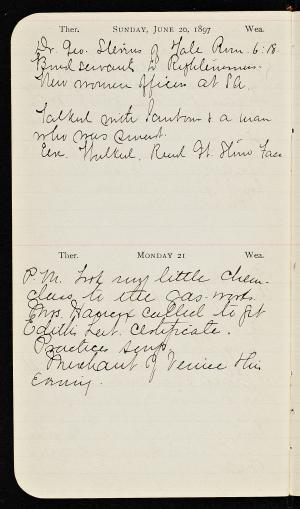 Ther. SUNDAY, JUNE 20, 1897 Wea.
Dr. Geo. Stevens of Yale Rom. 6:18.
Bond servants to Righteousness.
New women officers at SA.
Talked with & a man
who was
Eve. Walked. Read Ft.
Ther. MONDAY 21 Wea.
P.M. Took my little Chem.
class to the gas-works.
Mrs. called to get
Edith's cert. Certificate.
Practices songs.
Merchant of Venice this
Evening.